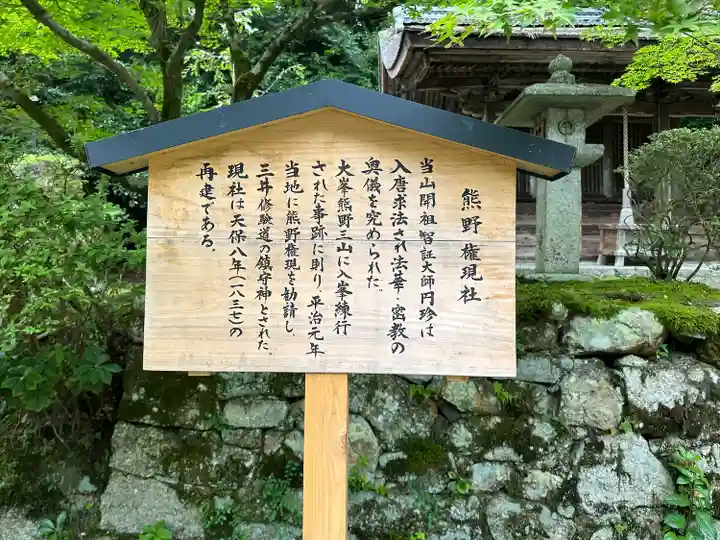 熊野権現社
当山開祖智証大師円珍は
入唐求法され法華・密教の
奥儀を究められた。
大峯熊野三山に入峯練行
された事跡に則り、平治元年
当地に熊野権現を勧請し、
三井修験道の鎮守神とされた。
現社は天保八年(一八三七)の
再建である。